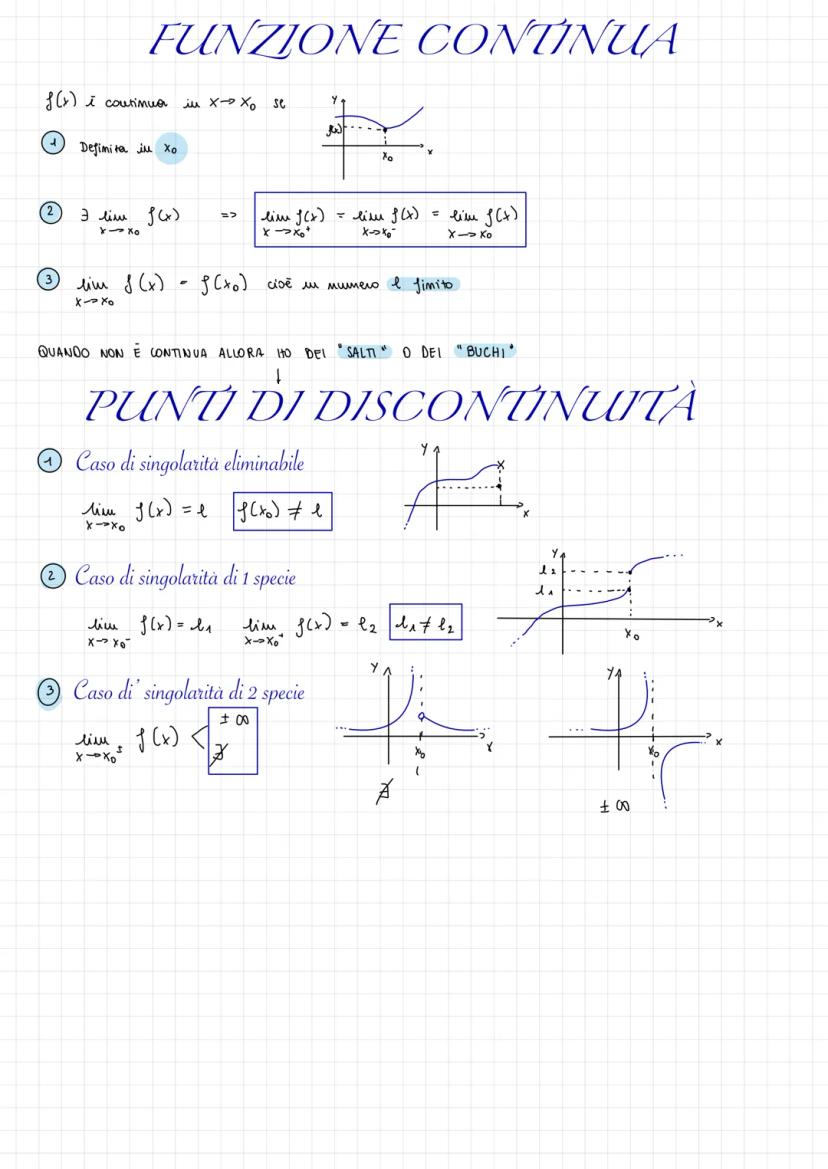 FUNZIONE CONTINUA
f(x) è continua in x→x₀ se
1 Definita in x₀
y f(x₀) x₀ x
2 ∃ lim x→x₀ f(x) => lim x→x₀⁺ f(x) = lim x→x₀⁻ f(x) = lim x→x₀ f(x)
3 lim x→x₀ f(x) = f(x₀) cioè un numero l finito
QUANDO NON È CONTINUA ALLORA HO DEI "SALTI" O DEI "BUCHI"
↓
PUNTI DI DISCONTINUITÀ
1 Caso di singolarità eliminabile
lim x→x₀ f(x) = l f(x₀) ≠ l
y x
2 Caso di singolarità di 1 specie
lim x→x₀⁻ f(x) = l₁ lim x→x₀⁺ f(x) = l₂ l₁ ≠ l₂
y l₂ l₁ x₀ x
3 Caso di' singolarità di 2 specie
lim x→x₀± f(x) < ± ∞ ∄
y x₀ x ∄
y x₀ x ± ∞